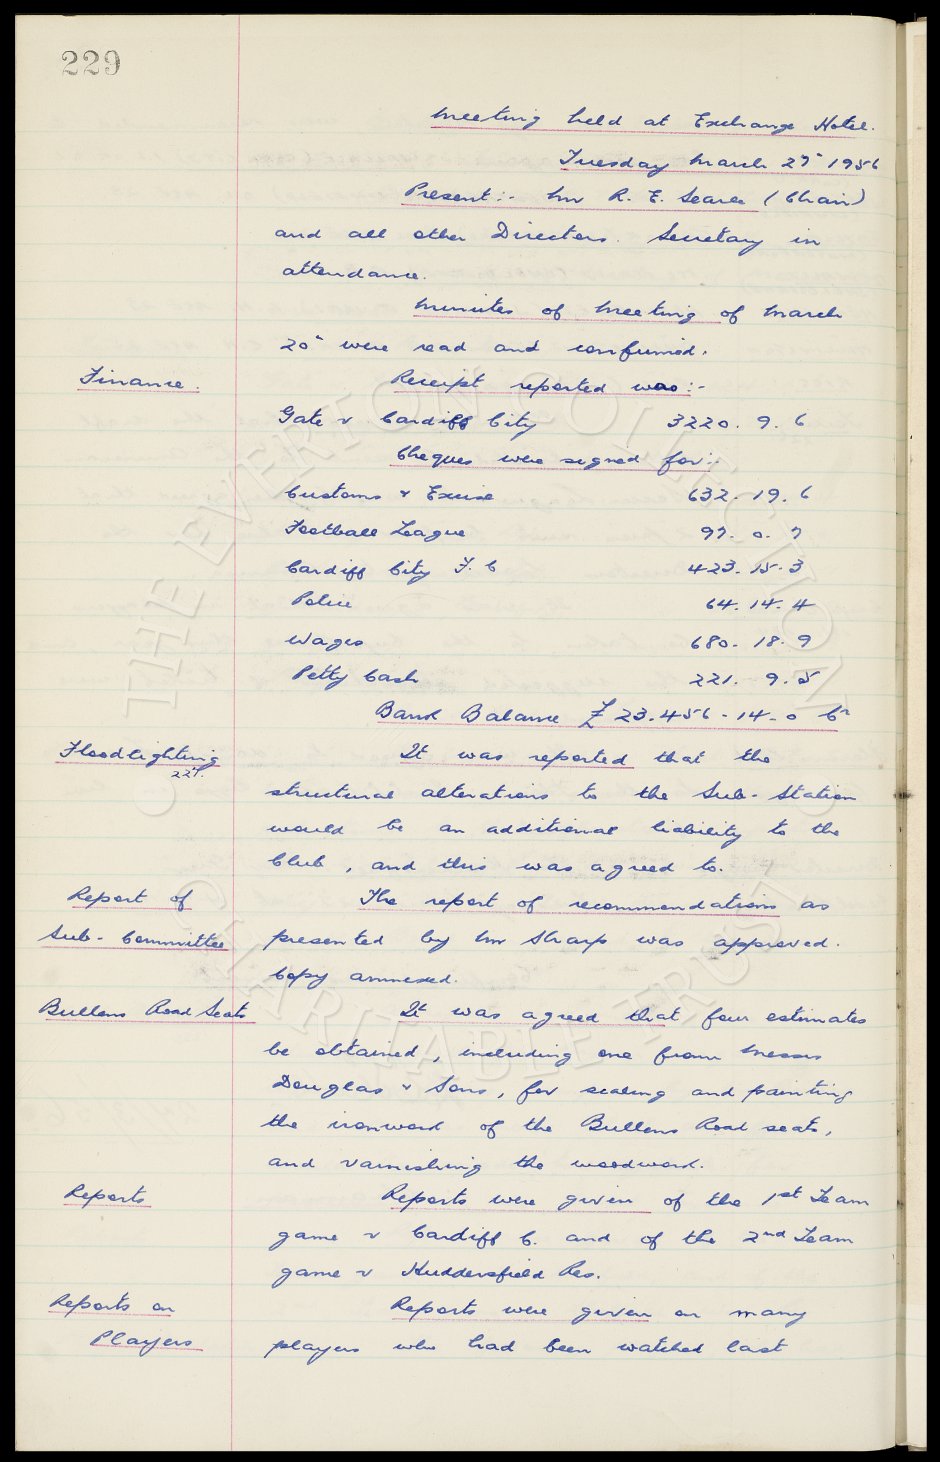 229
Meeting held at Exchange Hotel.
Tuesday March 27" 1956
Present:- Mr R. E. Searle (Chair)
and all other Directors. Secretary in
attendance.
Minutes of Meeting of March
20" were read and confirmed.
Finance. Receipt reported was:-
Gate v Cardiff City 3220. 9. 6
Cheques were signed for:-
Customs & Excise 632. 19. 6
Football League 97. 0. 7
Cardiff City F. C 423. 15. 3
Police 64. 14. 4
Wages 680. 18. 9
Petty Cash 221. 9. 5
Bank Balance £23.456-14-0 Cr
Floodlighting It was reported that the
227.
structural alterations to the Sub-Station
would be an additional liability to the
Club, and this was agreed to.
Report of The report of recommendations as
Sub-Committee presented by Mr Sharp was approved.
Copy annexed.
Bullens Road Seats It was agreed that four estimates
be obtained, including one from Messrs
Douglas & Sons, for scaling and painting
the ironword of the Bullens Road seats,
and varnishing the woodword.
Reports Reports were given of the 1st Team
game v Cardiff C. and of the 2nd Team
game v Huddersfield Res.
Reports on Reports were given on many
Players players who had been watched last
© THE EVERTON COLLECTION CHARITABLE TRUST